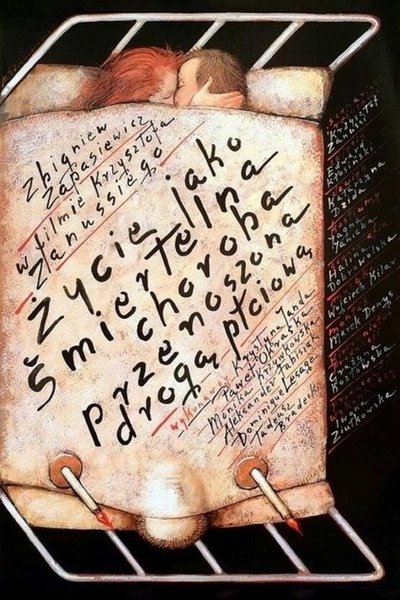 Zbigniew
Zapasiewicz
w filmie Krzysztofa
Zanussiego
Życie jako
śmiertelna
choroba
przenoszona
drogą płciową
wykonawcy Krystyna Janda
Paweł Okraska
Monika Krzywkowska
Aleksander Fabisiak
Dominique Lesage
Tadeusz
Bradecki
Krzysztof
Zanussi
Edward
Kłosiński
Halina
Dobrowolska
Wojciech Kilar
Marek Denys
Grażyna
Kozłowska
Ewa
Ziułkowska